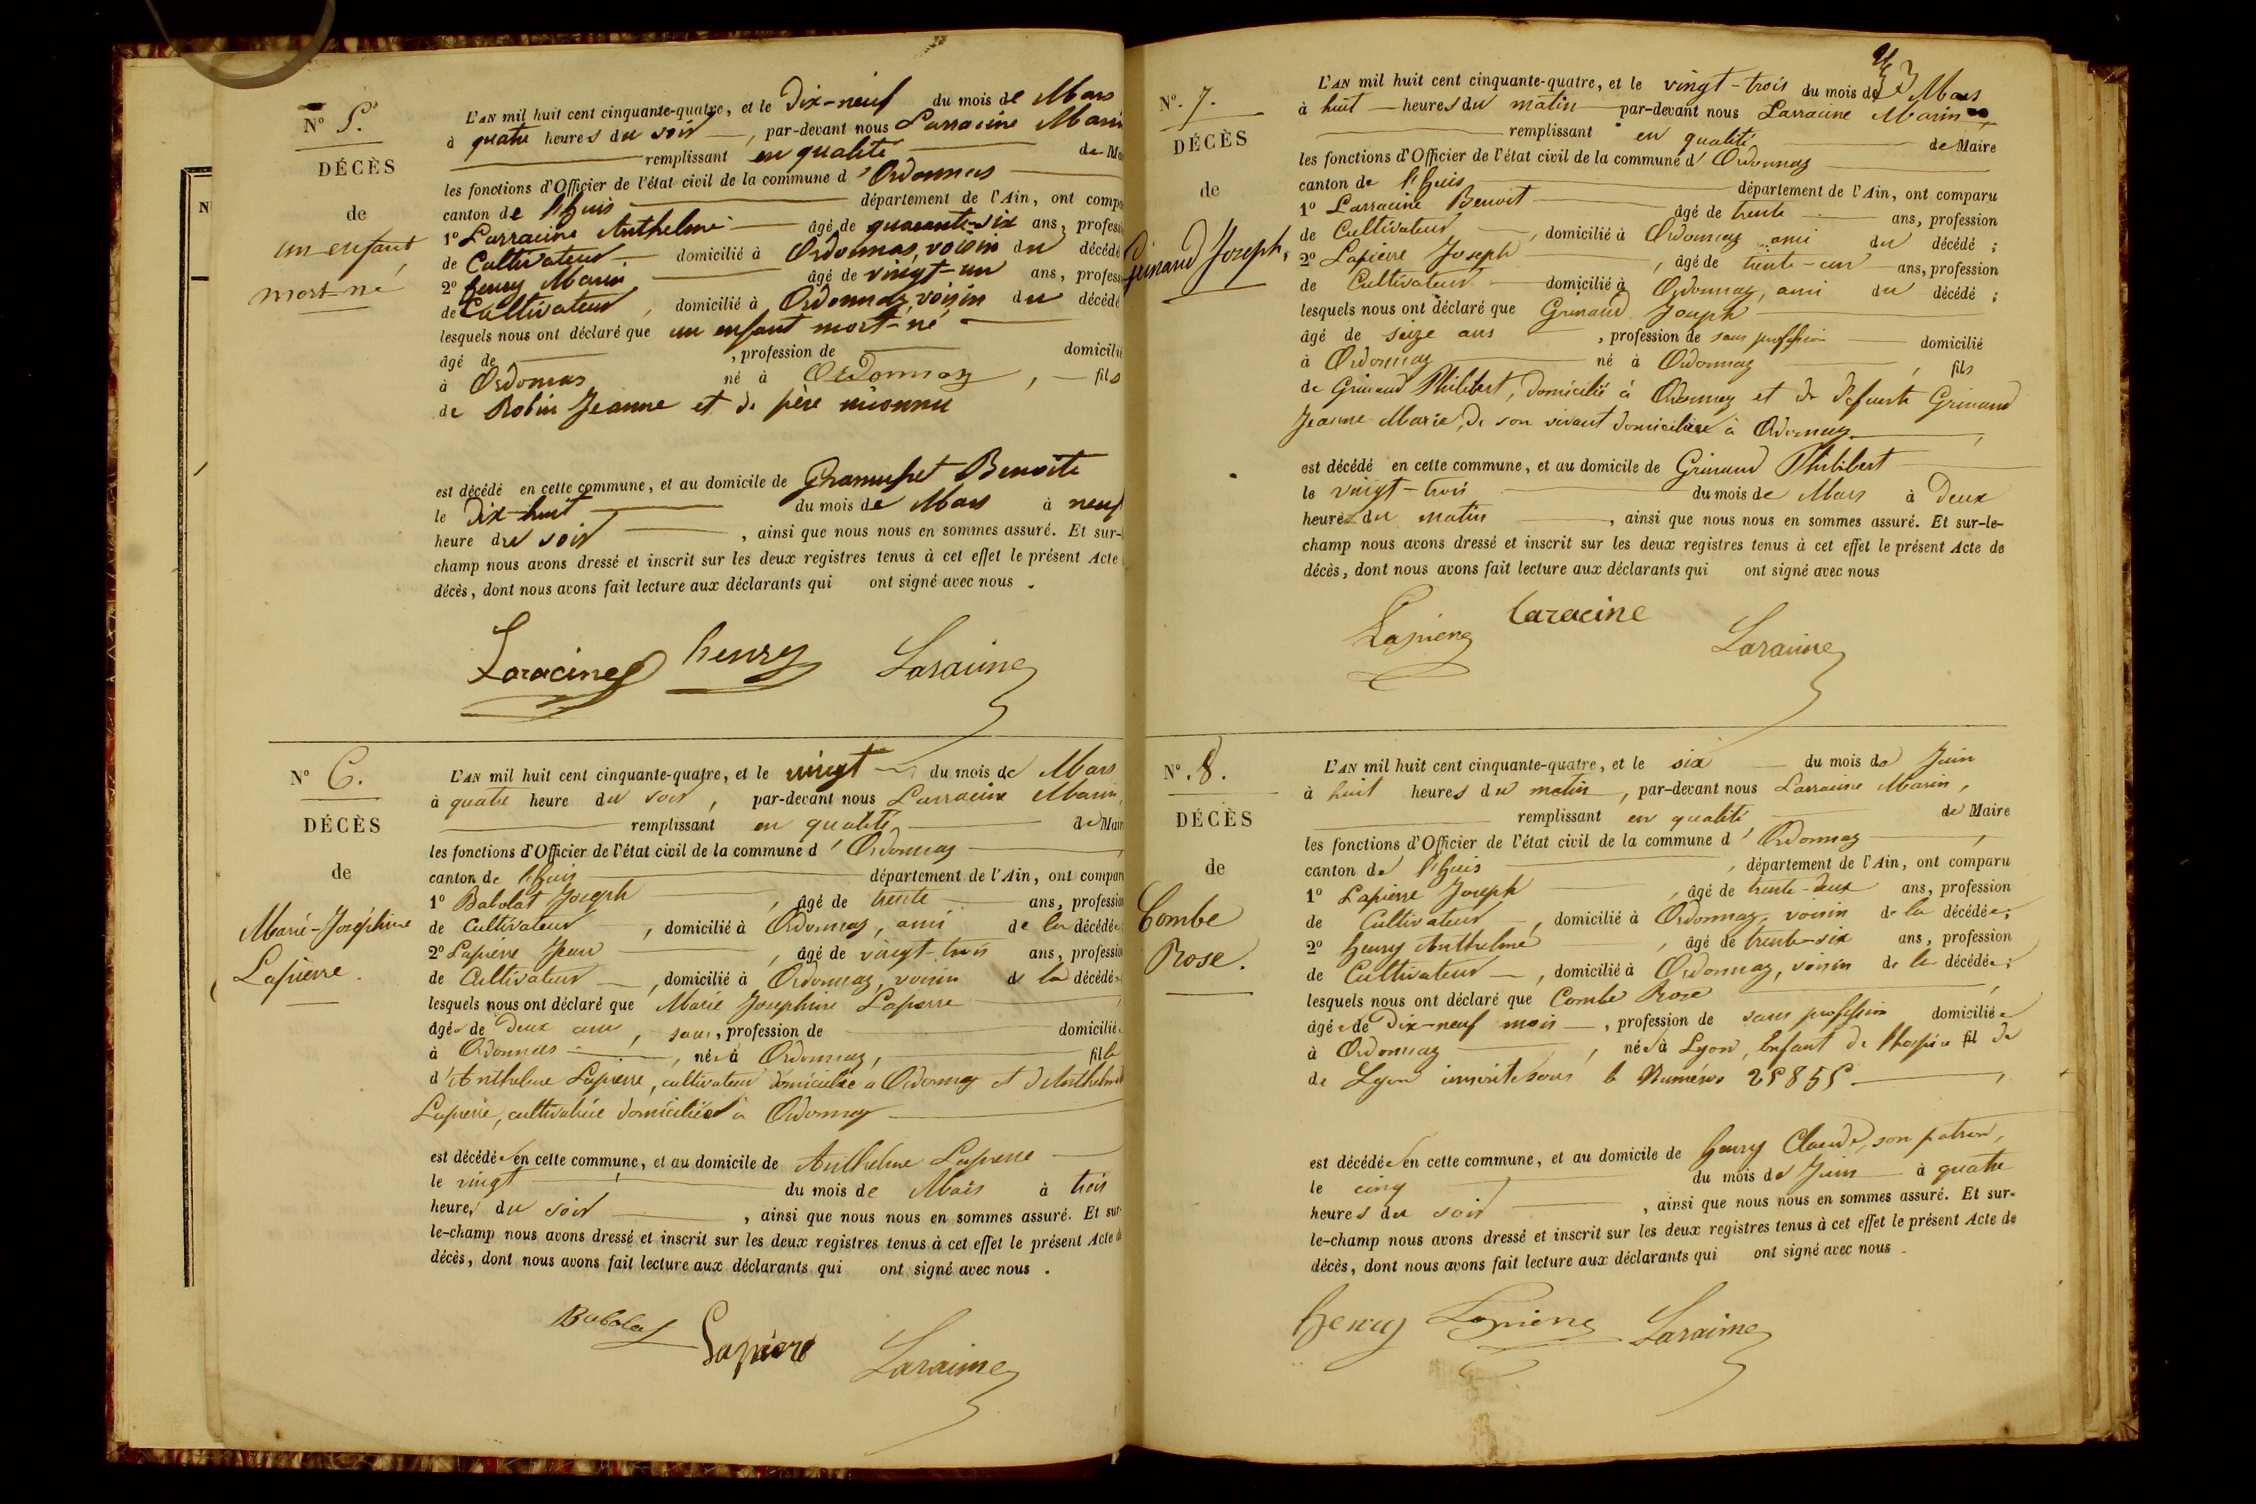 Nº 5.
DÉCÈS
de
un enfant
mort-né
L'AN mil huit cent cinquante-quatre, et le Dix-neuf du mois de Mars
à quatre heures du soir, par-devant nous Larracine Marin
remplissant en qualité de Ma
les fonctions d'Officier de l'état civil de la commune d'Ordonnas
canton de l'huis département de l'Ain, ont comp
1º Larracine Anthelme âgé de quarante-six ans, profess
de Cultivateur domicilié à Ordonnas, voisin du décédé
2º henry Marin âgé de vingt-un ans, profess
de Cultivateur, domicilié à Ordonnaz voisin du décédé
lesquels nous ont déclaré que un enfant mort-né
âgé de , profession de domicilié
à Ordonnas né à Ordonnaz, fils
de Robin Jeanne et de père inconnu
est décédé en cette commune, et au domicile de Benoite
le Dix-huit du mois de Mars à neuf
heure du soir, ainsi que nous nous en sommes assuré. Et sur-
champ nous avons dressé et inscrit sur les deux registres tenus à cet effet le présent Acte
décès, dont nous avons fait lecture aux déclarants qui ont signé avec nous.
Laracine henry Laraine
Nº 6.
DÉCÈS
de
Marie-Joséphine
Lapierre.
L'AN mil huit cent cinquante-quatre, et le vingt du mois de Mars
à quatre heure du soir, par-devant nous Larracine Marin,
remplissant en qualité de Mair
les fonctions d'Officier de l'état civil de la commune d'Ordonnaz
canton de l'huis département de l'Ain, ont compar
1º Babolat Joseph, âgé de trente ans, profession
de Cultivateur, domicilié à Ordonnaz, ami de la décédée
2º Lapierre Jean, âgé de vingt-trois ans, profession
de Cultivateur, domicilié à Ordonnaz, voisin de la décédée
lesquels nous ont déclaré que Marie Josephine Lapierre
âgée de Deux ans, sans, profession de domiciliée
à Ordonnas, née à Ordonnaz, fille
d'Anthelme Lapierre, cultivateur domicilié à Ordonnaz et d'Anthelmette
Lapierre, cultivatrice domiciliée à Ordonnaz
est décédée en cette commune, et au domicile de Anthelme Lapierre
le vingt du mois de Mars à trois
heures du soir, ainsi que nous nous en sommes assuré. Et sur-
le-champ nous avons dressé et inscrit sur les deux registres tenus à cet effet le présent Acte de
décès, dont nous avons fait lecture aux déclarants qui ont signé avec nous.
Babolat Lapierre Laraine
Nº. 7.
DÉCÈS
de
Grinand Joseph,
L'AN mil huit cent cinquante-quatre, et le vingt-trois du mois de Mars
à huit heures du matin par-devant nous Larracine Marin
remplissant en qualité de Maire
les fonctions d'Officier de l'état civil de la commune d'Ordonnaz
canton de l'huis département de l'Ain, ont comparu
1º Larracine Benoit âgé de trente ans, profession
de Cultivateur, domicilié à Ordonnaz ami du décédé;
2º Lapierre Joseph, âgé de trente-un ans, profession
de Cultivateur domicilié à Ordonnaz, ami du décédé;
lesquels nous ont déclaré que Grinand Joseph
âgé de seize ans, profession de sans profession domicilié
à Ordonnaz né à Ordonnaz, fils
de Grinand Philibert, domicilié à Ordonnaz et de defunte Grinand
Jeanne-Marie, de son vivant domiciliée à Ordonnaz,
est décédé en cette commune, et au domicile de Grinand Philibert
le vingt-trois du mois de Mars à Deux
heures du matin, ainsi que nous nous en sommes assuré. Et sur-le-
champ nous avons dressé et inscrit sur les deux registres tenus à cet effet le présent Acte de
décès, dont nous avons fait lecture aux déclarants qui ont signé avec nous
Lapierre Laracine Laraine
Nº. 8.
DÉCÈS
de
Combe
Rose.
L'AN mil huit cent cinquante-quatre, et le six du mois de Juin
à huit heures du matin, par-devant nous Larracine Marin,
remplissant en qualité de Maire
les fonctions d'Officier de l'état civil de la commune d'Ordonnaz,
canton de l'huis, département de l'Ain, ont comparu
1º Lapierre Joseph, âgé de trente-deux ans, profession
de Cultivateur, domicilié à Ordonnaz, voisin de la décédée;
2º henry Anthelme, âgé de trente-six ans, profession
de Cultivateur, domicilié à Ordonnaz, voisin de la décédée;
lesquels nous ont déclaré que Combe Rose,
âgée de Dix-neuf mois, profession de sans profession domiciliée
à Ordonnaz, née à Lyon, Enfant de l'hospice fil de
de Lyon inscrite sous le Numéro 25855,
est décédée en cette commune, et au domicile de henry Claude, son patron,
le cinq du mois de Juin à quatre
heures du soir, ainsi que nous nous en sommes assuré. Et sur-
le-champ nous avons dressé et inscrit sur les deux registres tenus à cet effet le présent Acte de
décès, dont nous avons fait lecture aux déclarants qui ont signé avec nous.
henry Lapierre Laraine